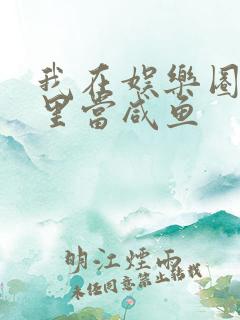 我在娱樂圈
里當咸鱼
明江煙雨
未经同意禁止转载